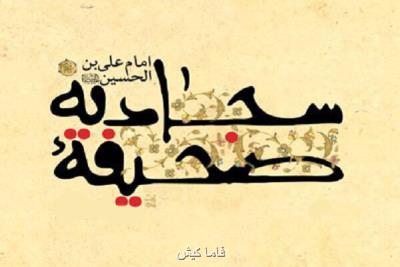 امام علی بن
الحسین
سجادیه
صحیفهٔ
فاما کیش